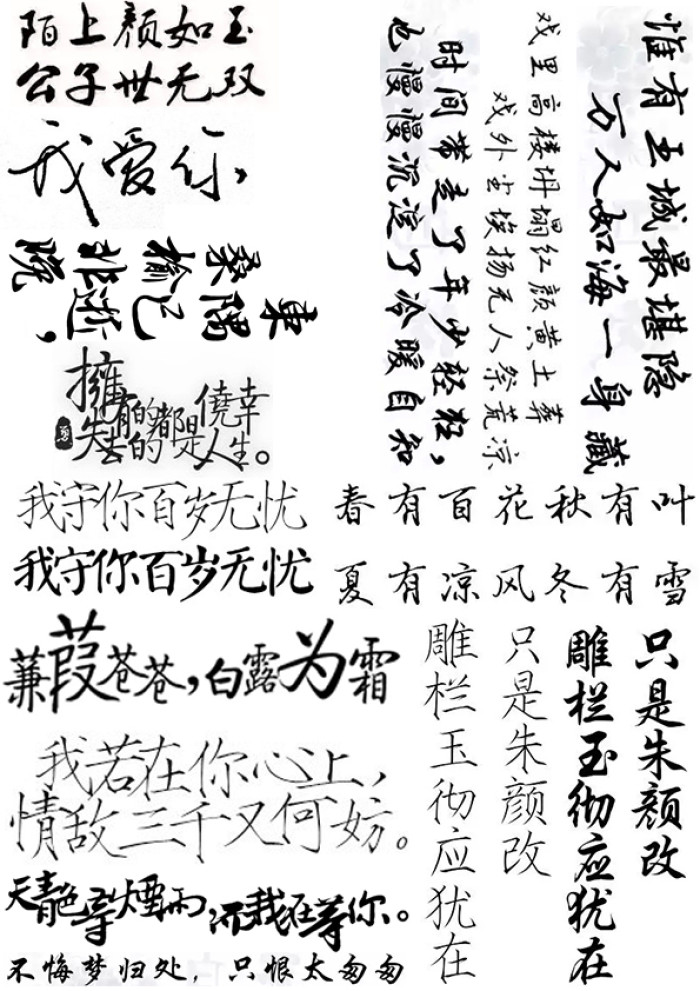 陌上颜如玉
公子世无双
我爱你,
東隅已逝,
桑榆非晚
擁有的都是僥幸
失去的都是人生。
惟有王城最堪隐
万人如海一身藏
戏里高楼坍塌红颜黄土葬
戏外尘埃扬无人祭荒凉
时间带走了年少轻狂,
也慢慢沉淀了冷暖自知
我守你百岁无忧
我守你百岁无忧
春有百花秋有叶
夏有凉风冬有雪
蒹葭苍苍,白露为霜
我若在你心上,
情敌三千又何妨。
天青色等煙雨,而我在等你。
不悔梦归处,只恨太匆匆
只是朱颜改
雕栏玉彻应犹在
只是朱颜改
雕栏玉彻应犹在